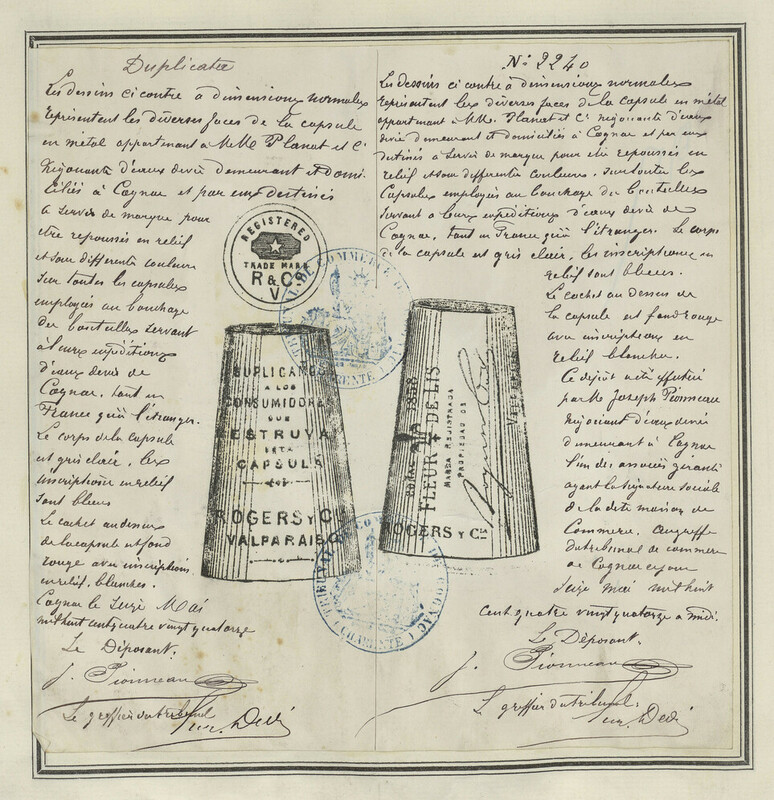 Duplicata
Les dessins ci contre à dimensions normales
représentent les diverses faces de la capsule
en métal appartenant à M.M. Planat et Cie
Négociants d'eaux de vie demeurant et domi-
ciliés à Cognac et par eux destinés
à servir de marque pour
être repoussés en relief
et sous différentes couleurs
sur toutes les capsules
employées au bouchage
des bouteilles servant
à leurs expéditions
d'eaux de vie de
Cognac, tant en
France qu'à l'étranger.
Le corps de la capsule
est gris clair, les
inscriptions en relief
sont bleues
Le cachet au dessus
de la capsule est fond
rouge avec inscriptions
en relief, blanches.
Cognac le seize Mai
mil huit cent quatre vingt quatorze
Le Déposant.
J. Pionneau
Le greffier du tribunal
REGISTERED
TRADE MARK
R & Co
V.
SUPLICAMOS
A LOS
CONSUMIDORES
QUE
DESTRUYAN
ESTA
CAPSULA
ROGERS Y Cia
VALPARAISO
No 2240
Les dessins ci contre à dimensions normales
représentent les diverses faces de la capsule en métal
appartenant à MM. Planat et Cie négociants d'eaux
de vie demeurant et domiciliés à Cognac et par eux
destinés à servir de marque pour être repoussés en
relief et sous différentes couleurs, sur toutes les
Capsules employées au bouchage des bouteilles
servant à leurs expéditions d'eaux de vie de
Cognac, tant en France qu'à l'étranger. Le corps
de la capsule est gris clair, les inscriptions en
relief sont bleues.
Le cachet au dessus de
la capsule est fond rouge
avec inscriptions en
relief blanches.
Ce dépôt a été effectué
par Mr Joseph Pionneau
négociant d'eaux de vie
demeurant à Cognac
l'un des associés gérants
ayant la signature sociale
de la dite maison de
Commerce, au greffe
du tribunal de commerce
de Cognac ce jour
seize mai mil huit
cent quatre vingt quatorze à midi.
Le Déposant.
J. Pionneau
Le greffier du tribunal.
FLEUR DE LIS
MARCA REGISTRADA
PROPIEDAD DE
Rogers y Cia
ROGERS Y Cia
TRIBUNAL DE COMMERCE DE COGNAC (CHARENTE)
TRIBUNAL DE COMMERCE DE COGNAC (CHARENTE)